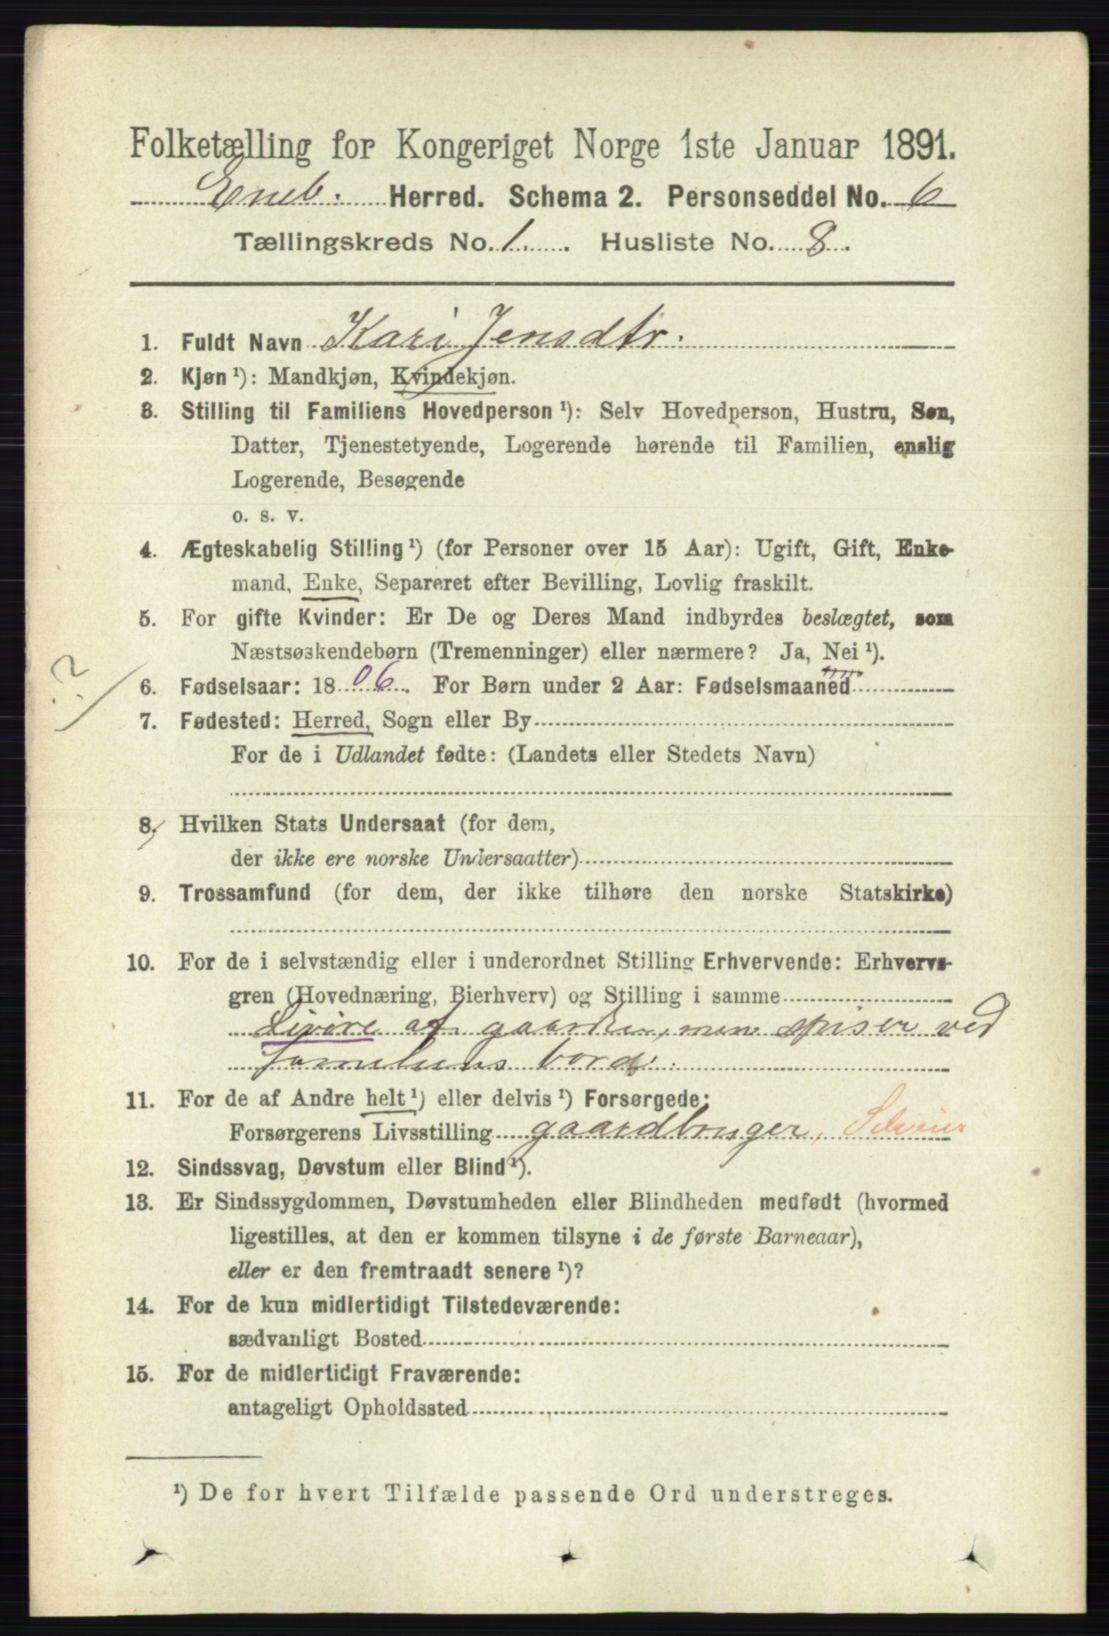 Folketælling for Kongeriget Norge 1ste Januar 1891.
Eneb. Herred. Schema 2. Personseddel No. 6
Tællingskreds No. 1. Husliste No. 8.
1. Fuldt Navn Kari Jensdtr.
2. Kjøn ¹): Mandkjøn, Kvindekjøn.
3. Stilling til Familiens Hovedperson ¹): Selv Hovedperson, Hustru, Søn,
Datter, Tjenestetyende, Logerende hørende til Familien, enslig
Logerende, Besøgende
o. s. v.
4. Ægteskabelig Stilling ¹) (for Personer over 15 Aar): Ugift, Gift, Enke-
mand, Enke, Separeret efter Bevilling, Lovlig fraskilt.
5. For gifte Kvinder: Er De og Deres Mand indbyrdes beslægtet, som
Næstsøskendebørn (Tremenninger) eller nærmere? Ja, Nei ¹).
.?
6. Fødselsaar: 1806. For Børn under 2 Aar: Fødselsmaaned
7. Fødested: Herred, Sogn eller By
For de i Udlandet fødte: (Landets eller Stedets Navn)
8. Hvilken Stats Undersaat (for dem,
der ikke ere norske Undersaatter)
9. Trossamfund (for dem, der ikke tilhøre den norske Statskirke)
10. For de i selvstændig eller i underordnet Stilling Erhvervende: Erhvervs-
gren (Hovednæring, Bierhverv) og Stilling i samme
Livøre af gaarden, men spiser ved
familiens bord.
11. For de af Andre helt ¹) eller delvis ¹) Forsørgede:
Forsørgerens Livsstilling gaardbruger, Selveier
12. Sindssvag, Døvstum eller Blind ¹).
13. Er Sindssygdommen, Døvstumheden eller Blindheden medfødt (hvormed
ligestilles, at den er kommen tilsyne i de første Barneaar),
eller er den fremtraadt senere ¹)?
14. For de kun midlertidigt Tilstedeværende:
sædvanligt Bosted
15. For de midlertidigt Fraværende:
antageligt Opholdssted
¹) De for hvert Tilfælde passende Ord understreges.